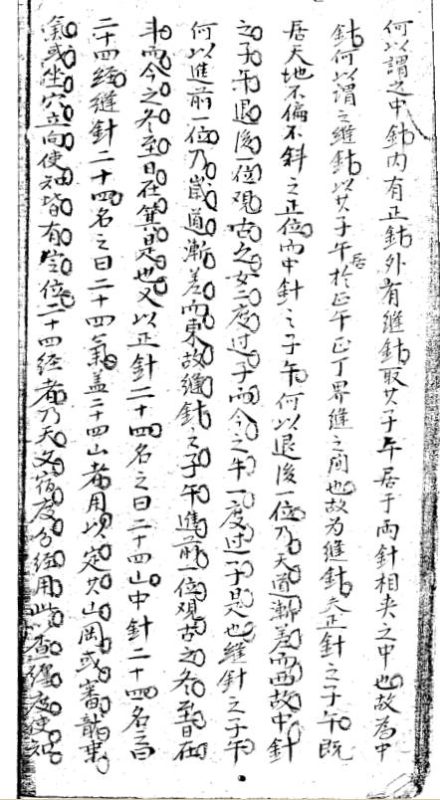 何以謂之中針內有正針外有縫針取其子午居于兩針相夾之中也故為中
針何以謂之縫針以其子午居於正午正丁界縫之間也故為縫針夫正針之子午既
居天地不偏不斜之正位而中針之子午何以退後一位乃天道漸差而西故中針
之子午退後一位觀古之女二度过子而今之牛一度过子是也縫針之子午
何以進前一位乃嵗道漸差而東故縫針之子午進前一位观古之冬至日在
斗而今之冬至日在箕是也又以正針二十四名之曰二十四山中針二十四名之曰
二十四經縫針二十四名之曰二十四氣盖二十四山者用以定其山岡或審龍東
氣或坐穴立向使知皆有定位二十四經者乃天文宿度分經用此查躔度使知